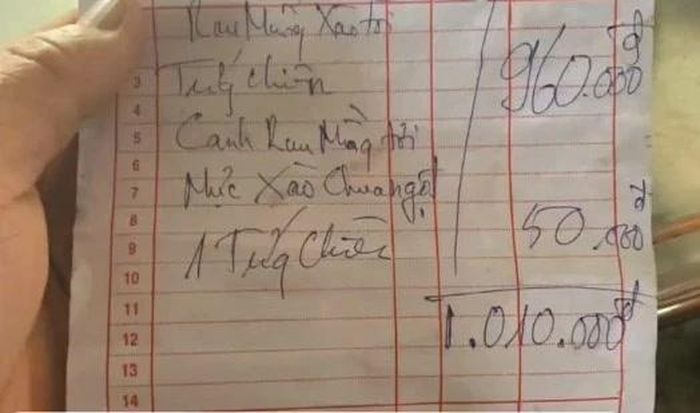 Rau Muống Xào tỏi
3 Trứng Chiên 960.000đ
4
5 Canh Rau Mồng tơi
6
7 Mực Xào Chua ngọt
8
9 1 Trứng Chiên 50.000đ
10
11
12 1.010.000đ
13
14